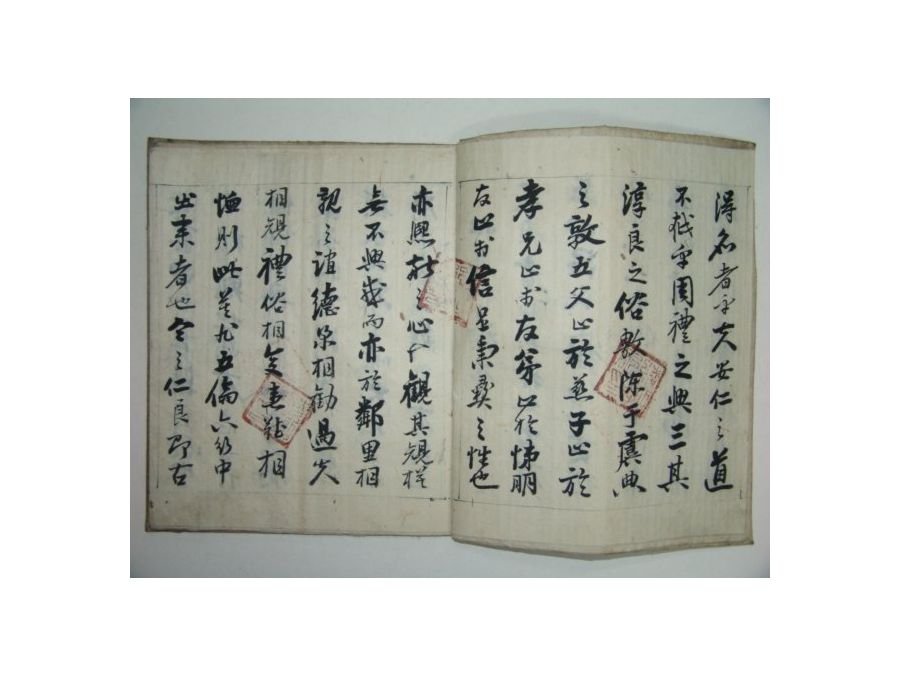 得名者乎夫安仁之道
不載乎周禮之典三其
淳良之俗敷陳于虞典
之敦五父止於慈子止於
孝兄止於友弟止於悌朋
友止於信是秉彝之性也
亦興於之心觀其規模
無不興感而亦於鄰里相
親之誼德業相勸過失
相規禮俗相交患難相
恤則此莫非五倫六行中
出來者也今之仁良即古